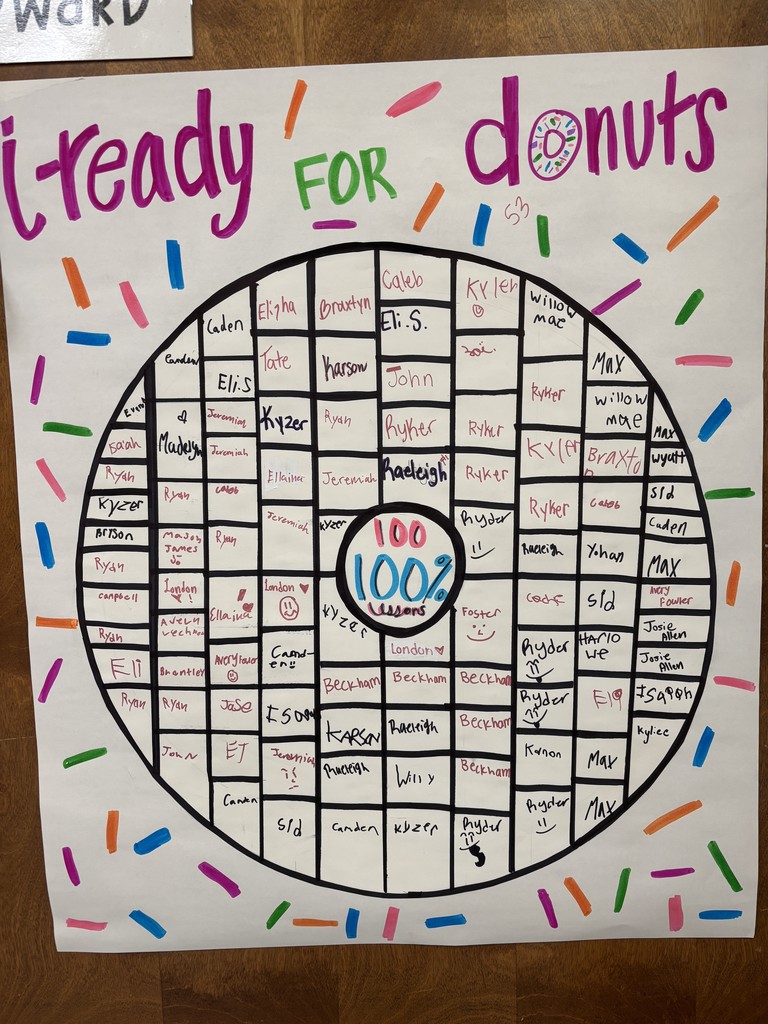 WARD
i-ready FOR donuts
53
Evan
Isaiah
Ryan
Kyzer
Brison
Ryan
Campbell
Ryan
Eli
Ryan
Camden
&
Madelyn
Ryan
Mason
James
London
Avelyn
Brantley
Ryan
John
Caden
Eli.S
Jeremiah
Jeremiah
Caleb
Ryan
Ellaina
Avery Fowler
Jase
EJ
Camden
Elisha
Tate
Kyzer
Ellaina
Jeremiah
London
Camd-
en
ISaiah
Jeremiah
Sld
Braxtyn
Karson
Ryan
Jeremiah
Kyzer
Kyzer
Beckham
KARSON
Raeleigh
Camden
Caleb
Eli.S.
John
Ryker
Raeleigh
100
100%
Lessons
London
Beckham
Raeleigh
Willy
Kyzer
Kyler
Zoë
Ryker
Ryker
Ryder
Foster
Beckham
Beckham
Beckham
Ryder
Willow
mae
Ryker
Kyler
Ryker
Raeleigh
Code
Ryder
Ryder
Kanon
Ryder
Max
Willow
mae
Braxto
n
Caleb
Yohan
Sld
Harlo
we
Eli
Max
Max
Max
Wyatt
Sld
Caden
Max
Avery
Fowler
Josie
Allen
Josie
Allen
ISaiah
Kyliee